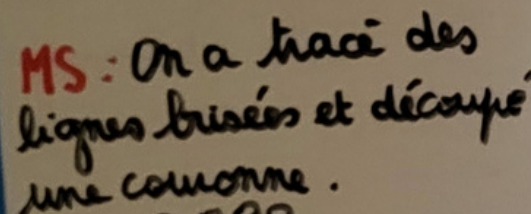 MS : On a tracé des
lignes brisées et découpé
une couronne.